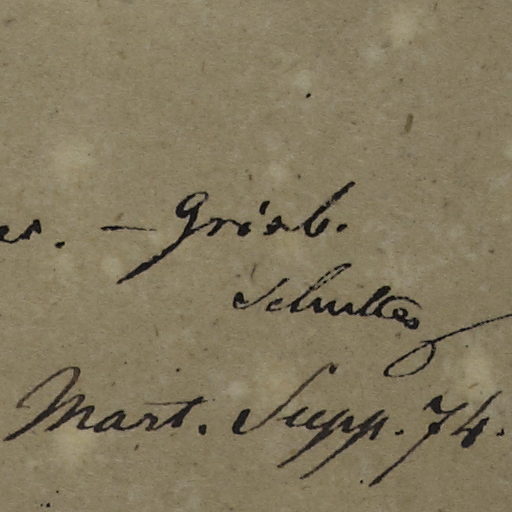 — Griseb.
Schultes
Mart. Supp. 74.